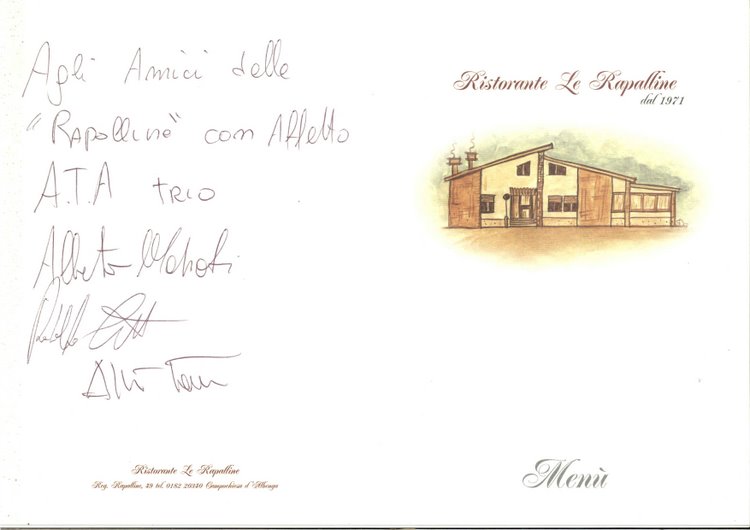 Agli Amici delle
"Rapalline" con Affetto
A.T.A trio
Alberto
Ristorante Le Rapalline
Reg. Rapalline, 49 tel. 0182 20340 Campochiesa d'Albenga
Ristorante Le Rapalline
dal 1971
Menù